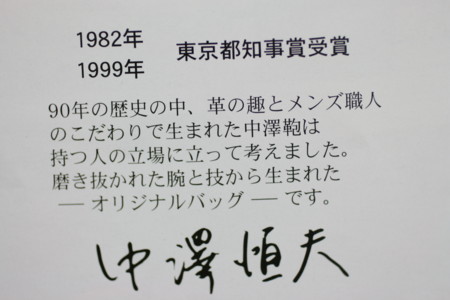 1982年
1999年 東京都知事賞受賞
90年の歴史の中、革の趣とメンズ職人
のこだわりで生まれた中澤鞄は
持つ人の立場に立って考えました。
磨き抜かれた腕と技から生まれた
― オリジナルバッグ ― です。
中澤恒夫